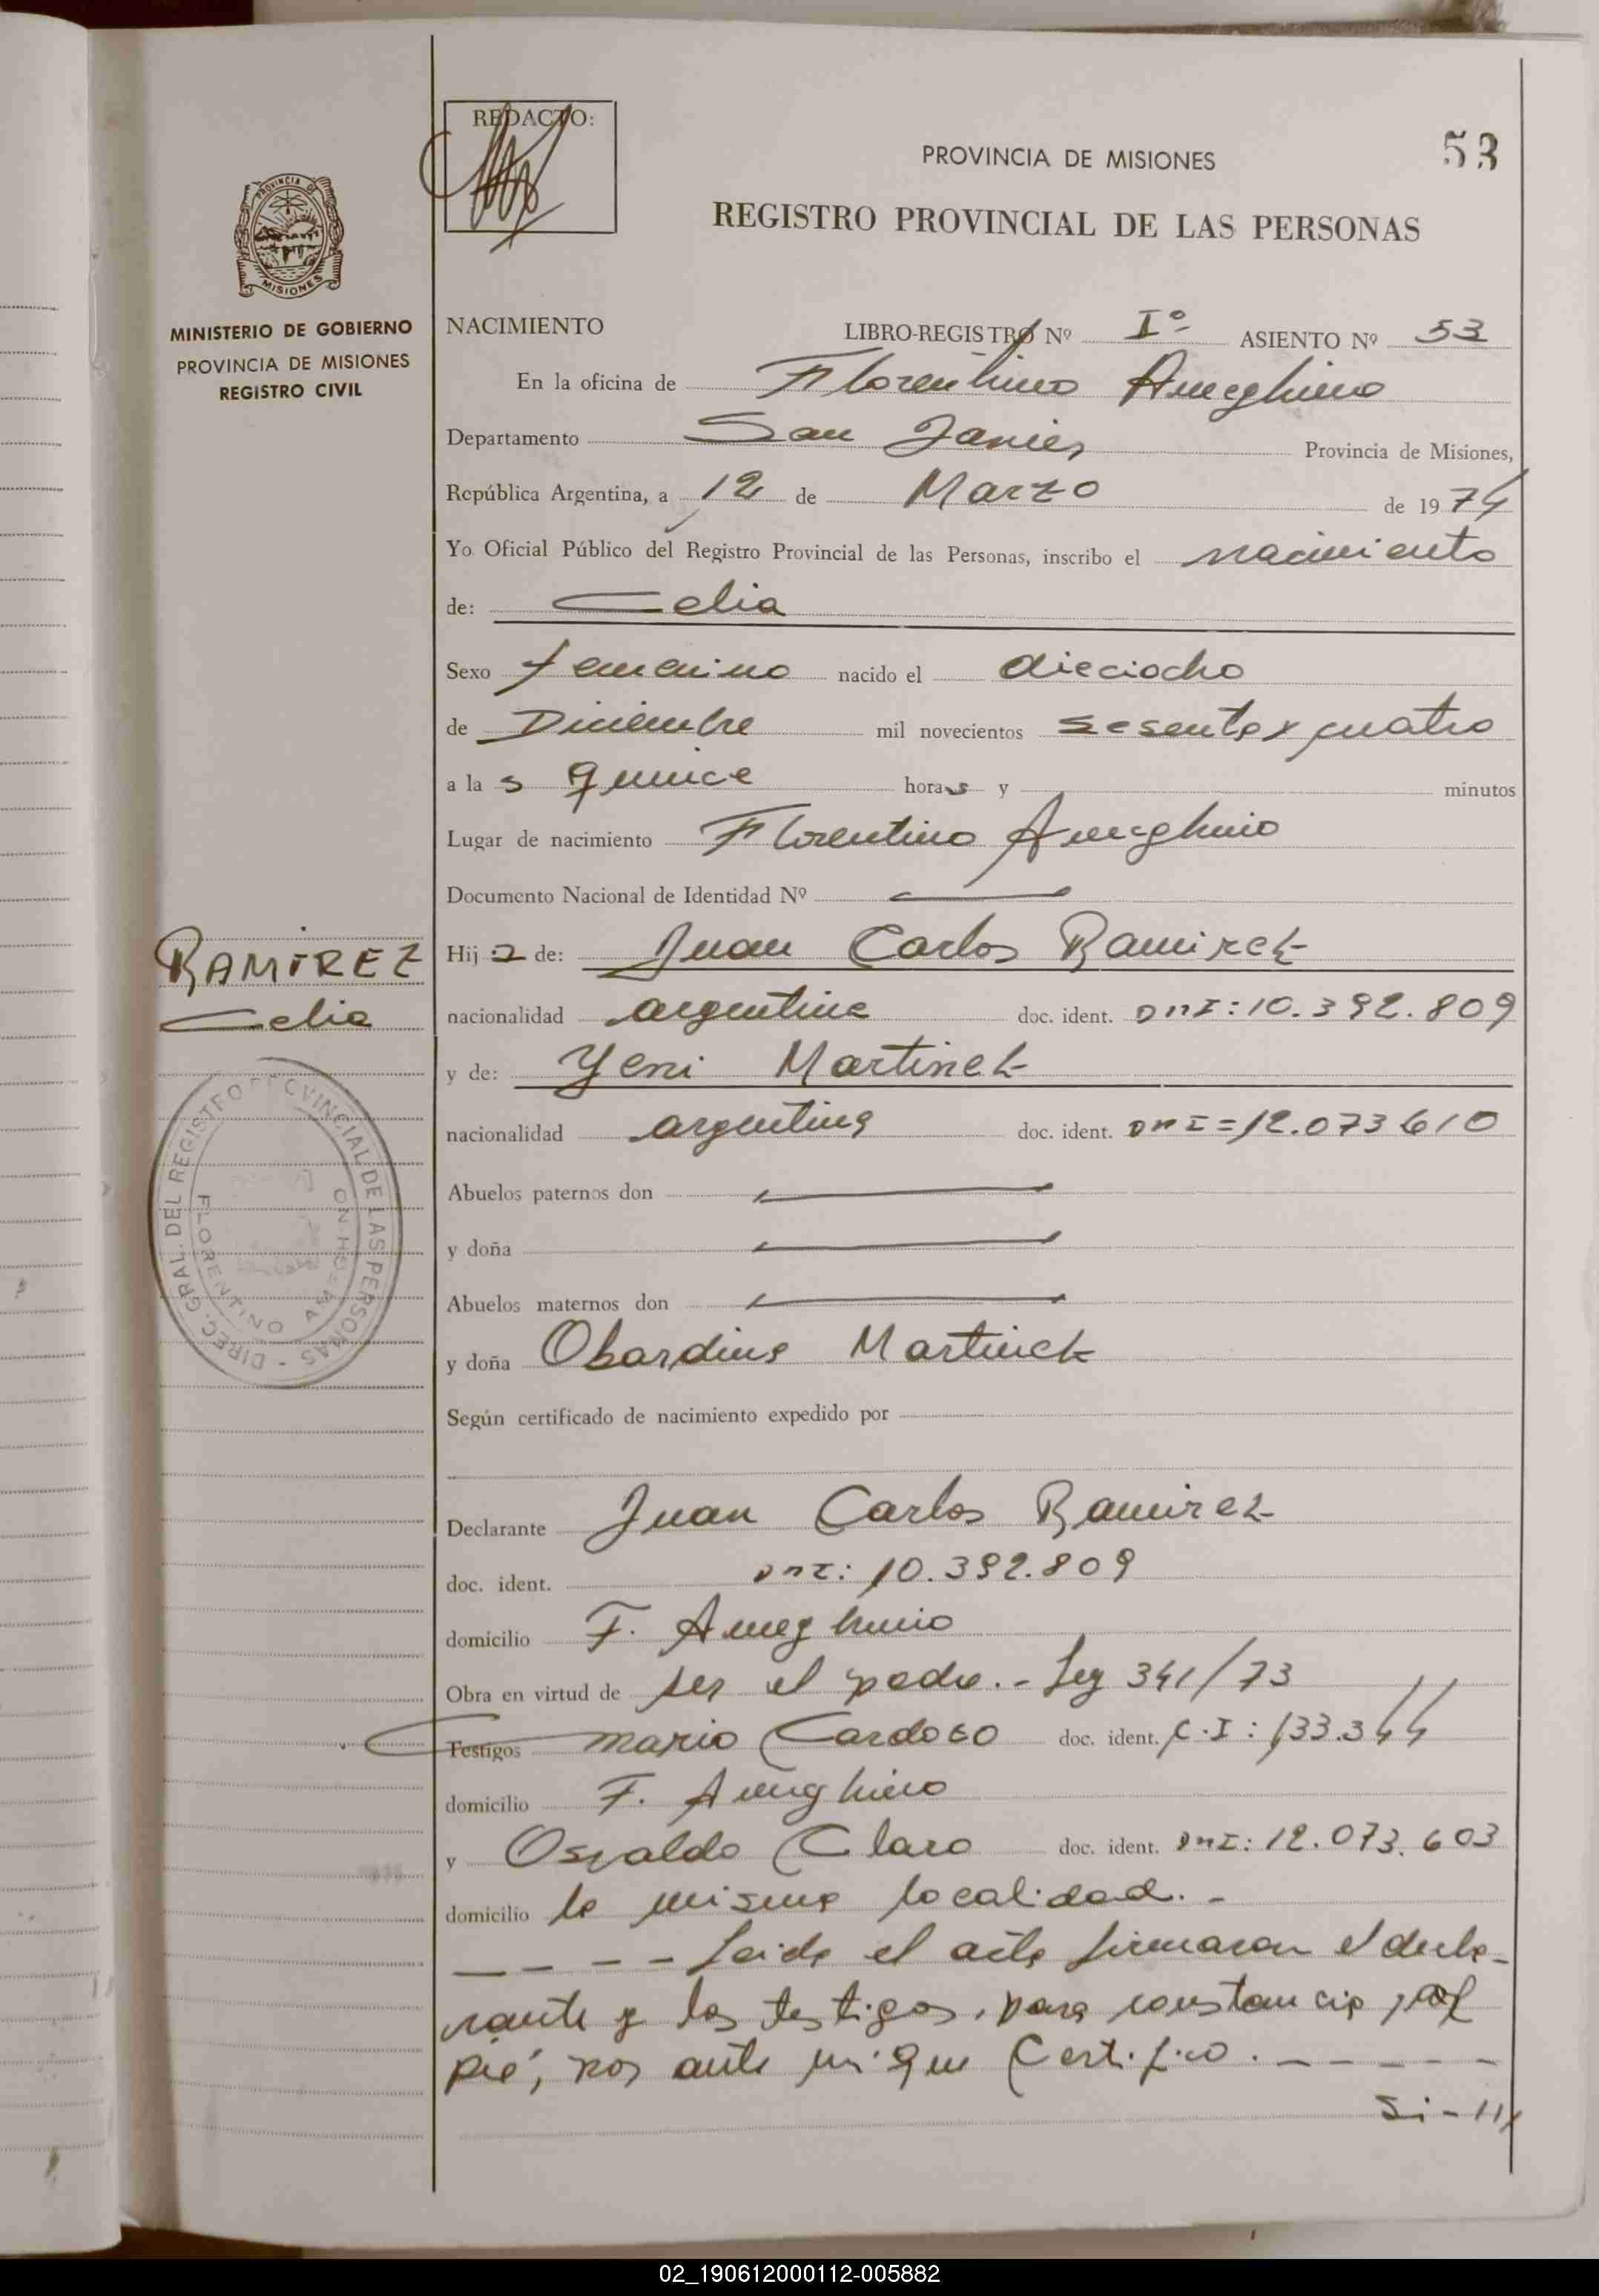 REDACTO:
53
PROVINCIA DE MISIONES
REGISTRO PROVINCIAL DE LAS PERSONAS
PROVINCIA DE
MISIONES
MINISTERIO DE GOBIERNO
PROVINCIA DE MISIONES
REGISTRO CIVIL
NACIMIENTO LIBRO-REGISTRO Nº Iº- ASIENTO Nº 53
En la oficina de Florentino Ameghino
Departamento San Javier Provincia de Misiones,
República Argentina, a 12 de Marzo de 1974
Yo Oficial Público del Registro Provincial de las Personas, inscribo el nacimiento
de: Celia
Sexo femenino nacido el dieciocho
de Diciembre mil novecientos sesenta y cuatro
a la s quince horas y minutos
Lugar de nacimiento Florentino Ameghino
Documento Nacional de Identidad Nº
RAMIREZ
Celia
Hij a de: Juan Carlos Ramirez
nacionalidad argentina doc. ident. DNI: 10.392.809
y de: Yeni Martinez
nacionalidad argentina doc. ident. DNI = 12.073610
DIREC. GRAL. DEL REGISTRO PROVINCIAL DE LAS PERSONAS -
FLORENTINO AMEGHINO
Abuelos paternos don
y doña
Abuelos maternos don
y doña Obardina Martinez
Según certificado de nacimiento expedido por
Declarante Juan Carlos Ramirez
doc. ident. DNI: 10.392.809
domicilio F. Ameghino
Obra en virtud de ser el padre.- Ley 341/73
Testigos Mario Cardoso doc. ident. C.I: 133.344
domicilio F. Ameghino
y Osvaldo Claro doc. ident. DNI: 12.073.603
domicilio la misma localidad.-
_ _ _ _ Leida el acta firmaron el decla-
rante y los testigos, para constancia, al
pié, por ante mi que Certifico. _ _ _ _ _
02_190612000112-005882